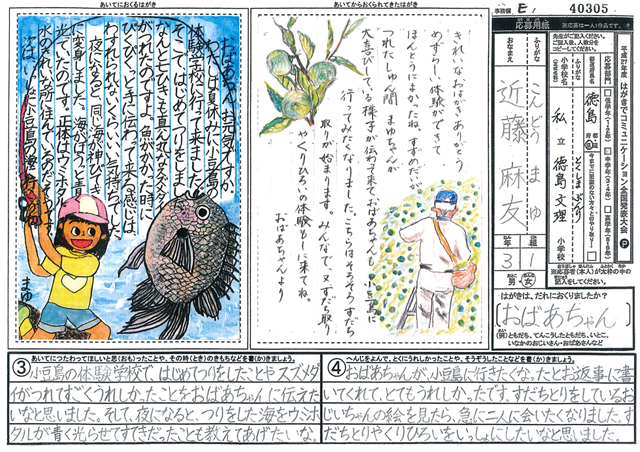 あいてにおくるはがき
おばあちゃん、お元気ですか。
わたしは夏休みに小豆島の
体験学校に行って来ました。
そこではじめてつりをしました。
なんと七ひきも
つれたのですよ。魚がかかった時に
手に伝わって来る感じは、
わすれられないくらい、気持ちよ
夜になると、同じ海が
に変身しました。海がぼうっと青く
光ていたのです。正体はウミホタル
水のきれいな所に住んでいるのだそうです。
まゆ
あいてからおくられてきたはがき
きれいなおはがきありがとう
めずらしい体験ができて
ほんとうによかったね。すずめだいが
つれたしゅん間、まゆちゃんが
大喜びしてる様子が伝わって来ておばあちゃんも小豆島に
行ってみたくなりました。こちらはそろそろすだち
取りが始まります。みんなで、又すだち取り
やくりひろいの体験をしに来てね。
おばあちゃんより
事務欄 E1 40305
応募用紙
※応募は一人1作品です。
先生がご記入ください。
ご記入後、人数分を
コピーしてください。
平成27年度 はがきでコミュニケーション全国発表大会 P
応募部門
都道府県名
徳島
ふりがな
小学校名
とくしまぶんり
私立徳島文理
小学校
ふりがな
おなまえ
こんどう まゆ
近藤麻友
3年
1組
男・女
※応募者(本人)が太枠の中の
記入をしてください。
はがきは、だれにおくりましたか?
おばあちゃん
例)ともだち、てんこうしたともだち、いとこ、
いなかのおじいさん・おばあさんなど
③ あいてにつたわってほしいと思(おも)ったことや、その時(とき)のきもちなどを書(か)きましょう。
小豆島の体験学校で はじめてつりをしたことやスズメダ
イがつれてすごくうれしかったことをおばあちゃんに伝えた
いなと思いました。そして、夜になると、つりをした海をウミホ
タルが青く光らせてすてきだったことも教えてあげたいな。
④ へんじをよんで、とくにうれしかったことや、そうぞうしたことなどを書(か)きましょう。
おばあちゃんが、小豆島に行きたくなったとお返事に書
いてくれて、とてもうれしかったです。すだちとりをしているお
じいちゃんの絵を見たら、急に二人に会いたくなりました。す
だちとりやくりひろいをいっしょにしたいなと思いました。